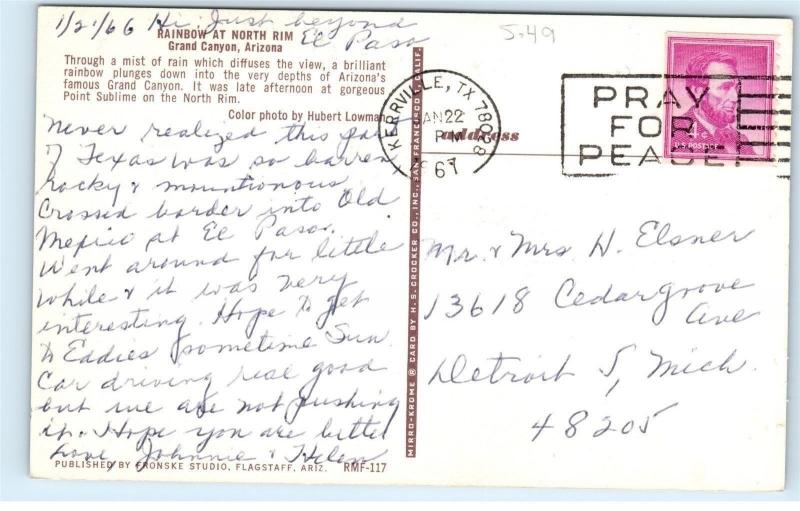 1/21/66 Hi: Just beyond
El Paso
5.49
RAINBOW AT NORTH RIM
Grand Canyon, Arizona
Through a mist of rain which diffuses the view, a brilliant
rainbow plunges down into the very depths of Arizona's
famous Grand Canyon. It was late afternoon at gorgeous
Point Sublime on the North Rim.
Color photo by Hubert Lowman
Never realized this part
of Texas was so barren
rocky & mountionous
Crossed border into Old
Mexico at El Paso.
Went around for little
while & it was very
interesting. Hope to get
to Eddies sometime Sun
Car driving real good
but we are not pushing
it. Hope you are better
Love Johnnie & Helen
PUBLISHED BY FRONSKE STUDIO, FLAGSTAFF, ARIZ. RMF-117
MIRRO-KROME ® CARD BY H. S. CROCKER CO., INC., SAN FRANCISCO 1, CALIF.
KERRVILLE, TX 78028
JAN 22
PM
1967
address
PRAY
FOR
PEACE
4¢
U.S. POSTAGE
Mr. & Mrs H. Elsner
13618 Cedargrove
Ave
Detroit 5, Mich.
48205